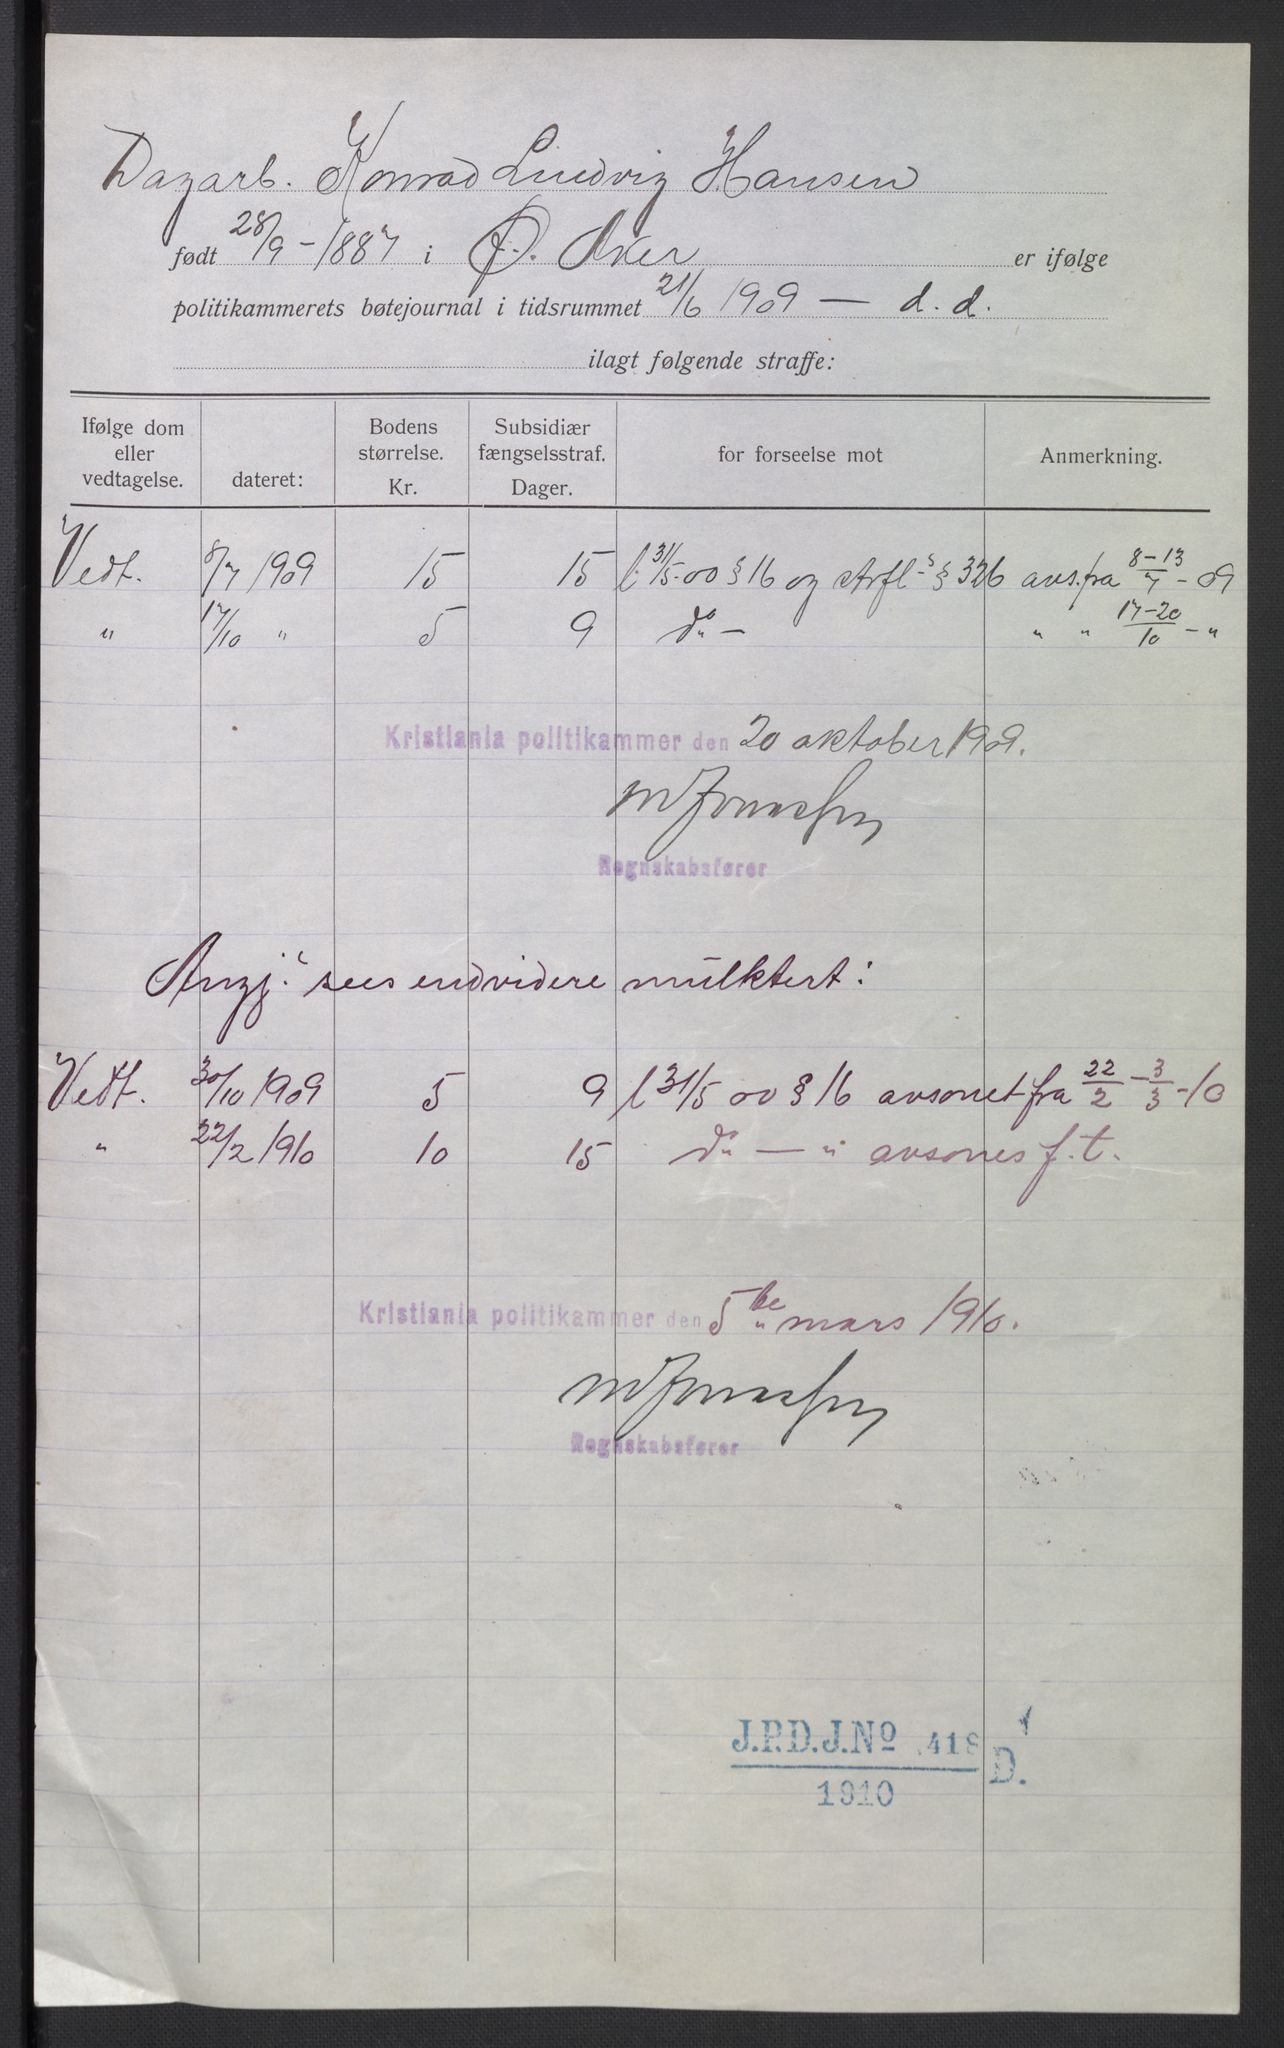 Dagarb. Konrad Ludvig Hansen
født 28/9 - 1887 i Ø. Aker er ifølge
politikammerets bøtejournal i tidsrummet 21/6 1909 — d. d.
ilagt følgende straffe:
Ifølge dom eller vedtagelse. dateret: Bodens størrelse. Kr. Subsidiær fængselsstraf. Dager. for forseelse mot Anmerkning.
Vedt. 8/7 1909 15 15 l 31/5-00 § 16 og strfl-s § 326 avs. fra 8-13/7 - 09
" 17/10 " 5 9 do - " " 17-20/10 - "
Kristiania politikammer den 20 oktober 1909.
Regnskabsfører
Angj. sees endvidere mulktert:
Vedt. 30/10 1909 5 9 l 31/5 00 § 16 avsonet fra 22/2 - 3/3 - 10
" 22/2 1910 10 15 do — " avsones f. t.
Kristiania politikammer den 5te mars 1910.
Regnskabsfører
J.P.D.J.No 418 D.
1910